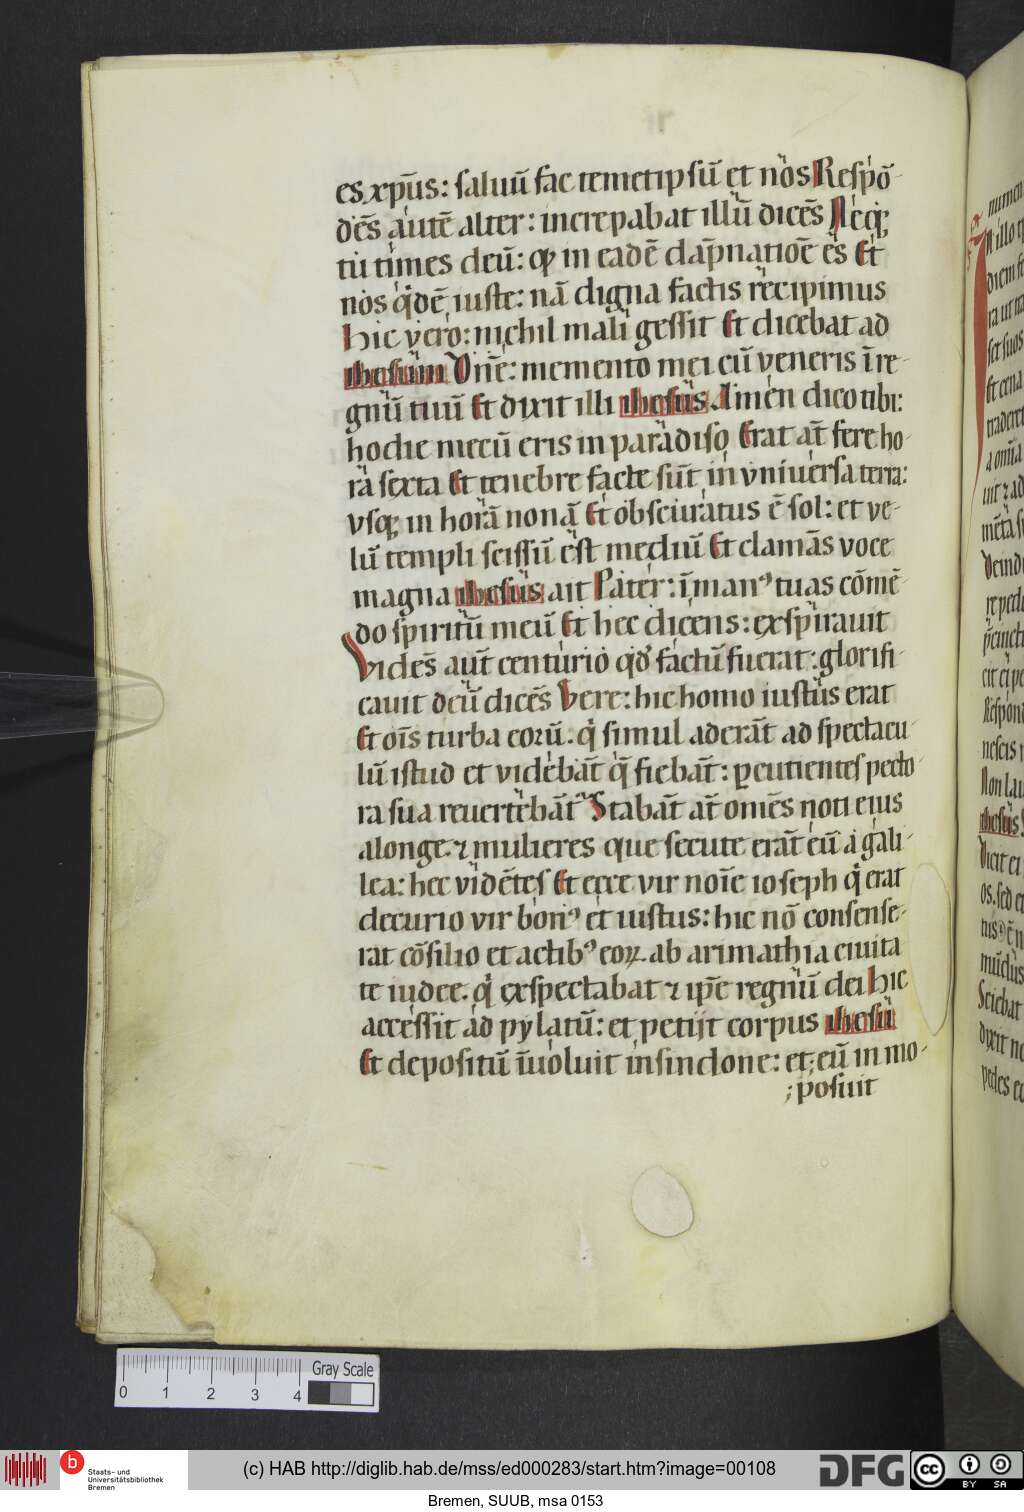 es xp̄us: saluū fac temetipsū et nos Respō-
dēs autē alter: increpabat illū dicēs Neq
tu times deū: qp in eadē dāpnatiōe es Et
nos q̇dē iuste: nā digna factis recipimus
hic vero: nichil mali gessit Et dicebat ad
ihesum Dn̄e: memento mei cū veneris ī re-
gnū tuū Et dixit illi ihesus Amen dico tibi:
hodie mecū eris in paradiso Erat aūt fere ho-
ra sexta Et tenebre facte sūt in vniuersa terra:
vsq in horā nonā Et obscuratus ē sol: et ve-
lū templi scissū est mediū Et clamās voce
magna ihesus ait Pater: ī manꝰ tuas cōmē-
do spiritū meū Et hec dicens: exspirauit
Videns aūt centurio qd̓ factū fuerat: glorifi-
cauit deū dicēs Vere: hic homo iustus erat
Et oīs turba eorū. q̇ simul aderāt ad spectacu-
lū istud et videbāt q̄ fiebāt: ꝑcutientes pecto-
ra sua reuertebāt Stabāt aūt omēs noti eius
alonge. ⁊ mulieres que secute erāt eū a gali-
lea: hec vidētes Et ecce vir noīe ioseph q̇ erat
decurio vir bonꝰ et iustus: hic nō consense-
rat cōsilio et actibꝰ eoꝝ. ab arimathia ciuita
te iudee. q̇ exspectabat ⁊ ip̄e regnū dei Hic
accessit ad pylatū: et petijt corpus ihesu
Et depositū īuoluit in sindone: et; eū in mo-
; posuit
numen
In illo
diem
ra ut
set suos
Et cena
traderet
a omīa
uit ⁊ ad
mēta
Deinde
it
cit
Respond
nescis
Non lau
ihesus
Dicit ei
os. sed et
tis ē
mūdus
Sciebat
dixit
pedes
0 1 2 3 4
Gray Scale
b
Staats- und
Universitätsbibliothek
Bremen
(c) HAB http://diglib.hab.de/mss/ed000283/start.htm?image=00108
DFG
cc BY SA
Bremen, SUUB, msa 0153